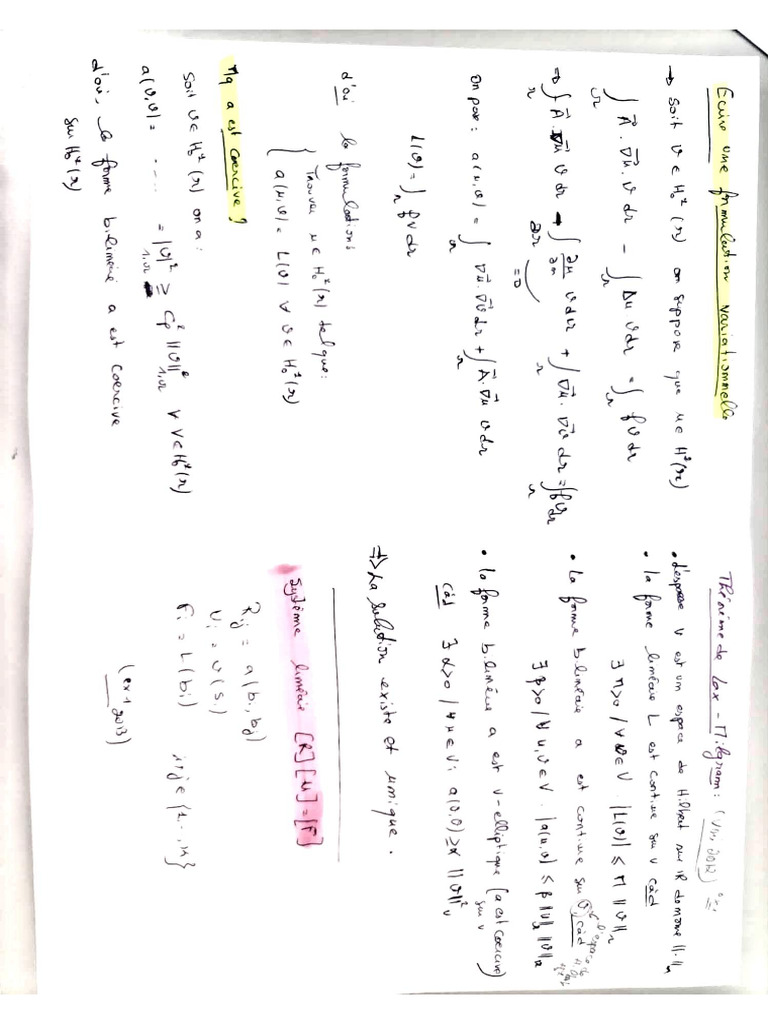 Ecrire une formulation variationnelle
→ Soit v ∈ H₀¹(Ω) on suppose que u ∈ H²(Ω)
∫_Ω A⃗ . ∇⃗u . v dΩ − ∫_Ω Δu v dΩ = ∫_Ω f v dΩ
⇒ ∫_Ω A⃗ . ∇⃗u v dΩ − ∫_∂Ω ∂u/∂n v dΩ + ∫_Ω ∇⃗u . ∇⃗v dΩ = ∫_Ω f v dΩ
= 0
on pose : a(u,v) = ∫_Ω ∇⃗u . ∇⃗v dΩ + ∫_Ω A⃗ . ∇⃗u v dΩ
L(v) = ∫_Ω f v dΩ
d'où la formulations
{ Trouver u ∈ H₀¹(Ω) tel que :
a(u,v) = L(v) ∀ v ∈ H₀¹(Ω)
Mq a est coercive ?
Soit v ∈ H₀¹(Ω) on a :
a(v,v) = .... = |v|²_1,Ω ≥ Cp² ||v||²_1,Ω ∀ v ∈ H₀¹(Ω)
d'où, la forme bilinéaire a est coercive
sur H₀¹(Ω)
Théorème de Lax-Milgram : (VIII 2012)
• L'espace V est un espace de Hilbert sur IR de norme ||.||
• la forme linéaire L est continue sur V càd
∃ M>0 / ∀ v ∈ V . |L(v)| ≤ M ||v||
• La forme bilinéaire a est continue sur càd
∃ β>0 / ∀ u,v ∈ V . |a(u,v)| ≤ β ||u|| ||v||
• la forme bilinéaire a est V-elliptique (a est coercive)
sur V
càd ∃ α>0 / ∀ u ∈ V ; a(v,v) ≥ α ||v||²_V
⇒ La solution existe et unique.
Système linéaire [R][U]=[F]
Rij = a(bi, bj)
Ui = U(Si)
Fi = L(bi) i,j ∈ {1..,N}
(ex 1 2013)